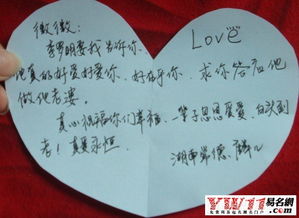 微微:
Love
李罗明要我告诉你、
他真的好爱好爱你、好在乎你、求你答应他
做他老婆。
真心祝福你们幸福、一辈子恩恩爱爱 白头到
老! 真爱永恒
湖南常德
YW11易名網